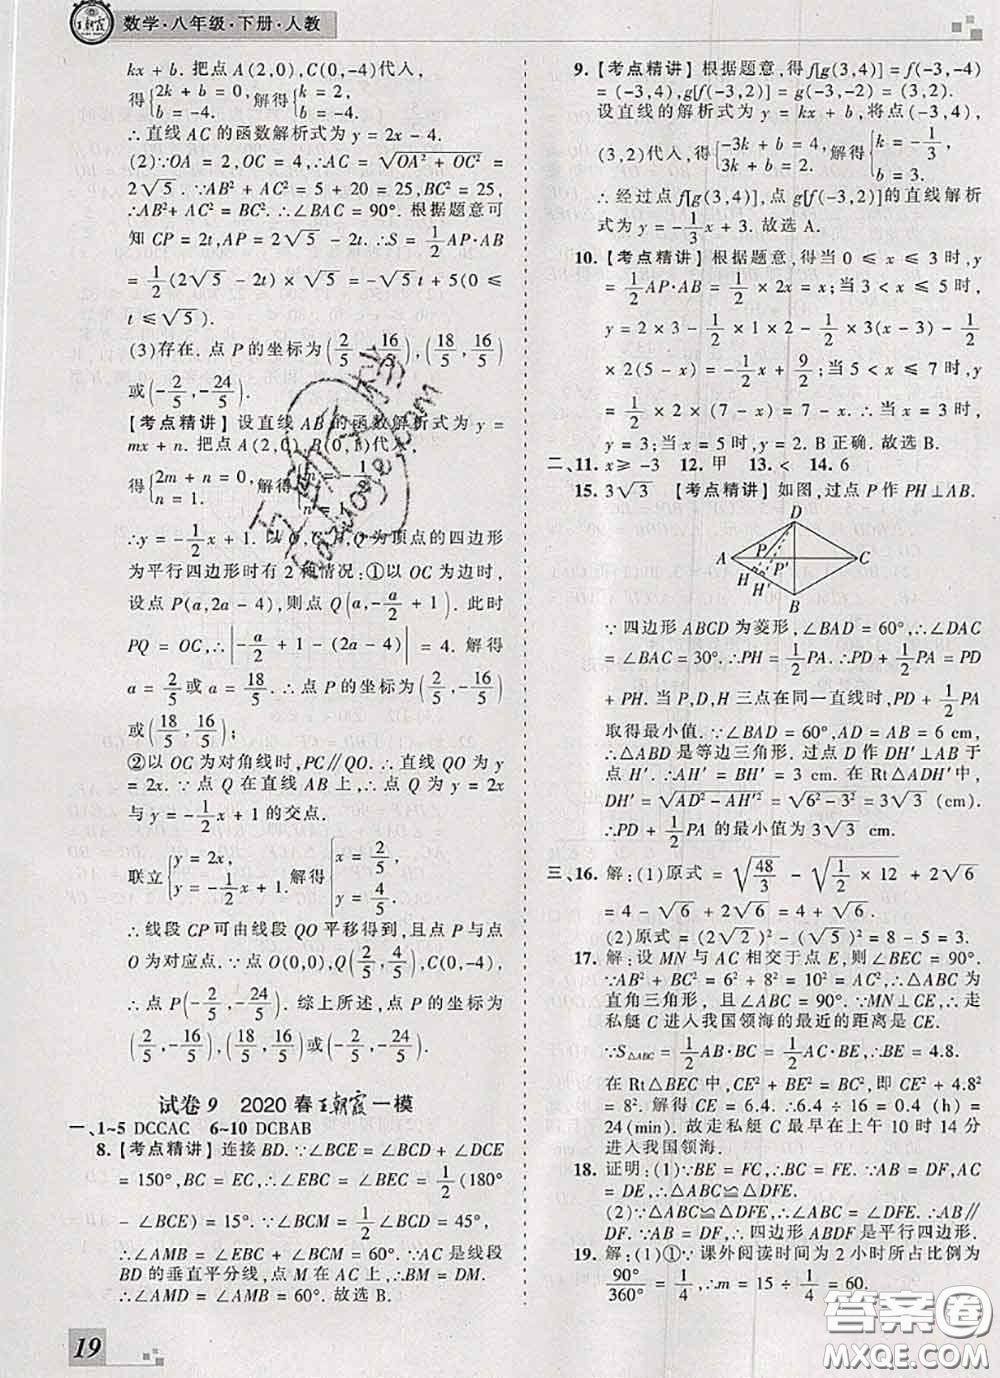 王朝霞
数学·八年级·下册·人教
kx + b. 把点 A(2,0),C(0,-4)代入,
得{2k + b = 0, b = -4. 解得{k = 2, b = -4.
∴直线 AC 的函数解析式为 y = 2x - 4.
(2)∵OA = 2,OC = 4,∴AC = √(OA² + OC²) =
2√5. ∵AB² + AC² = 5 + 20 = 25,BC² = 25,
∴AB² + AC² = BC². ∴∠BAC = 90°. 根据题意可
知 CP = 2t,AP = 2√5 - 2t. ∴S = 1/2 AP·AB
= 1/2(2√5 - 2t) × √5 = -√5t + 5(0 ≤
t ≤ √5).
(3)存在. 点 P 的坐标为(2/5, -16/5),(18/5, 16/5)
或(-2/5, -24/5).
【考点精讲】设直线 AB 的函数解析式为 y =
mx + n. 把点 A(2,0),B(0,1)代入,
得{2m + n = 0, n = 1. 解得{m = -1/2, n = 1.
∴y = -1/2x + 1. 以 O,C,P,Q 为顶点的四边形
为平行四边形时有 2 种情况:①以 OC 为边时,
设点 P(a,2a - 4),则点 Q(a, -a/2 + 1). 此时
PQ = OC,∴|-a/2 + 1 - (2a - 4)| = 4. 解得
a = 2/5或 a = 18/5. ∴点 P 的坐标为(2/5, -16/5)
或(18/5, 16/5);
②以 OC 为对角线时,PC∥QO. ∴直线 QO 为 y
= 2x. ∵点 Q 在直线 AB 上,∴点 Q 为 y = 2x
与 y = -1/2x + 1 的交点.
联立{y = 2x, y = -1/2x + 1. 解得{x = 2/5, y = 4/5.
∴线段 CP 可由线段 QO 平移得到,且点 P 与点
O 为对应点. ∵点 O(0,0),Q(2/5, 4/5),C(0,-4),
∴点 P(-2/5, -24/5). 综上所述,点 P 的坐标为
(2/5, -16/5),(18/5, 16/5)或(-2/5, -24/5).
试卷 9 2020 春王朝霞一模
一、1~5 DCCAC 6~10 DCBAB
8.【考点精讲】连接 BD. ∵∠BCE = ∠BCD + ∠DCE
= 150°,BC = EC,∴∠EBC = ∠BEC = 1/2(180°
- ∠BCE) = 15°. ∵∠BCM = 1/2∠BCD = 45°,
∴∠AMB = ∠EBC + ∠BCM = 60°. ∵AC 是线段
BD 的垂直平分线,点 M 在 AC 上,∴BM = DM.
∴∠AMD = ∠AMB = 60°. 故选 B.
19
9.【考点精讲】根据题意,得 f[g(3,4)] = f(-3,-4)
= (-3,4),g[f(-3,2)] = g(-3,-2) = (3,2).
设直线的解析式为 y = kx + b,将点(-3,4),
(3,2)代入,得{-3k + b = 4, 3k + b = 2. 解得{k = -1/3, b = 3.
∴经过点 f[g(3,4)],点 g[f(-3,2)]的直线解析
式为 y = -1/3x + 3. 故选 A.
10.【考点精讲】根据题意,得当 0 ≤ x ≤ 3 时,y =
1/2AP·AB = 1/2 × 2x = x. 当 3 < x ≤ 5 时,
y = 2×3 - 1/2×1×2 - 1/2×3(x-3) - 1/2
×2(5-x) = -1/2x + 9/2; 当 5 < x ≤ 7 时,y =
1/2 × 2 × (7 - x) = 7 - x. ∴当 x = 3 时,
y = 3;当 x = 5 时,y = 2. B 正确. 故选 B.
二、11. x≥-3 12. 甲 13. < 14. 6
15. 3√3 【考点精讲】如图,过点 P 作 PH⊥AB.
D
A P P′ C
H H′
B
∵四边形 ABCD 为菱形,∠BAD = 60°,∴∠DAC
= ∠BAC = 30°. ∴PH = 1/2PA. ∴PD + 1/2PA = PD
+ PH. 当 P,D,H 三点在同一直线时,PD + 1/2PA
取得最小值. ∵∠BAD = 60°,AD = AB = 6 cm,
∴△ABD 是等边三角形. 过点 D 作 DH′⊥AB 于
点 H′,∴AH′ = BH′ = 3 cm. 在 Rt△ADH′中,
DH′ = √(AD² - AH′²) = √(6² - 3²) = 3√3 (cm).
∴PD + 1/2PA 的最小值为 3√3 cm.
三、16. 解:(1)原式 = √(48/3) - √(1/2 × 12) + 2√6
= 4 - √6 + 2√6 = 4 + √6.
(2)原式 = (2√2)² - (√5)² = 8 - 5 = 3.
17. 解:设 MN 与 AC 相交于点 E,则∠BEC = 90°.
∵AB² + BC² = 6² + 8² = 10² = AC²,∴△ABC 为
直角三角形,且∠ABC = 90°. ∵MN⊥CE,∴走
私艇 C 进入我国领海的最近的距离是 CE.
∵S△ABC = 1/2AB·BC = 1/2AC·BE,∴BE = 4.8.
在 Rt△BEC 中,CE² = BC² - BE² = 8² - 4.8²,
∴CE = 6.4. ∴6.4 ÷ 16 = 0.4 (h) =
24(min). 故走私艇 C 最早在上午 10 时 14 分
进入我国领海.
18. 证明:(1)∵BE = FC,∴BC = FE. ∵AB = DF,AC
= DE,∴△ABC≌△DFE.
(2)∵△ABC≌△DFE,∴∠ABC = ∠DFE. ∴AB∥
DF. ∵AB = DF,∴四边形 ABDF 是平行四边形.
19. 解:(1)①∵课外阅读时间为 2 小时所占比例为
90°/360° = 1/4,∴m = 15 ÷ 1/4 = 60.
答案圈
MXQE.COM